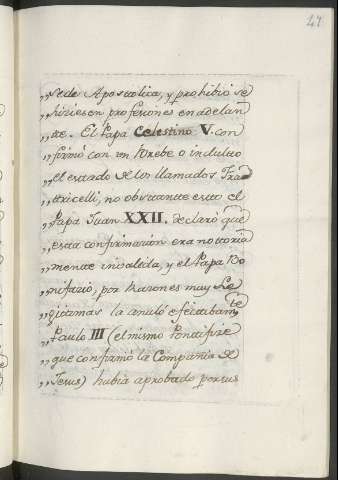 47
„sede Apostolica, y prohibió se
„hiciesen profesiones en adelan
„te. El Papa Celestino V. con
„firmó con un Brebe o indulto
„el estado de los llamados Fra
„tricelli, no obstante esto el
„Papa Juan XXII. declaró que
„esta confirmacion era notoria
„mente invalida, y el Papa Bo
„nifacio, por razones muy le
„gitimas la anuló efectibamte
„Paulo III (el mismo Pontifize
„que confirmó la Compañia de
„Jesus) habia aprobado por sus